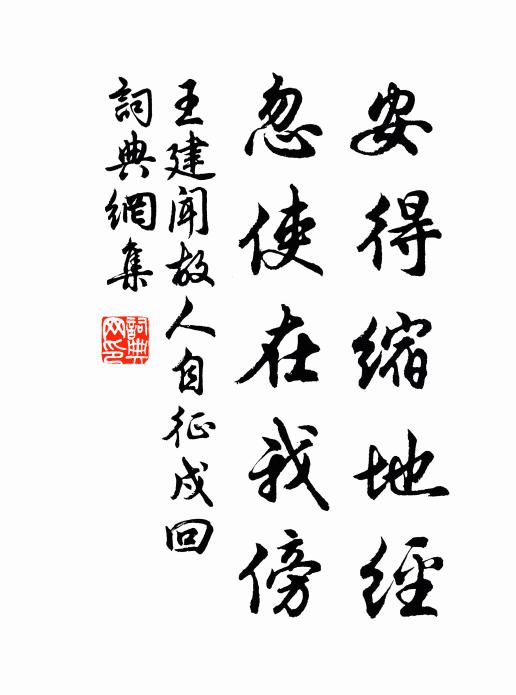 安得縮地經
忽使在我傍
王建聞故人自征戍回
詞典網集
詞典網印